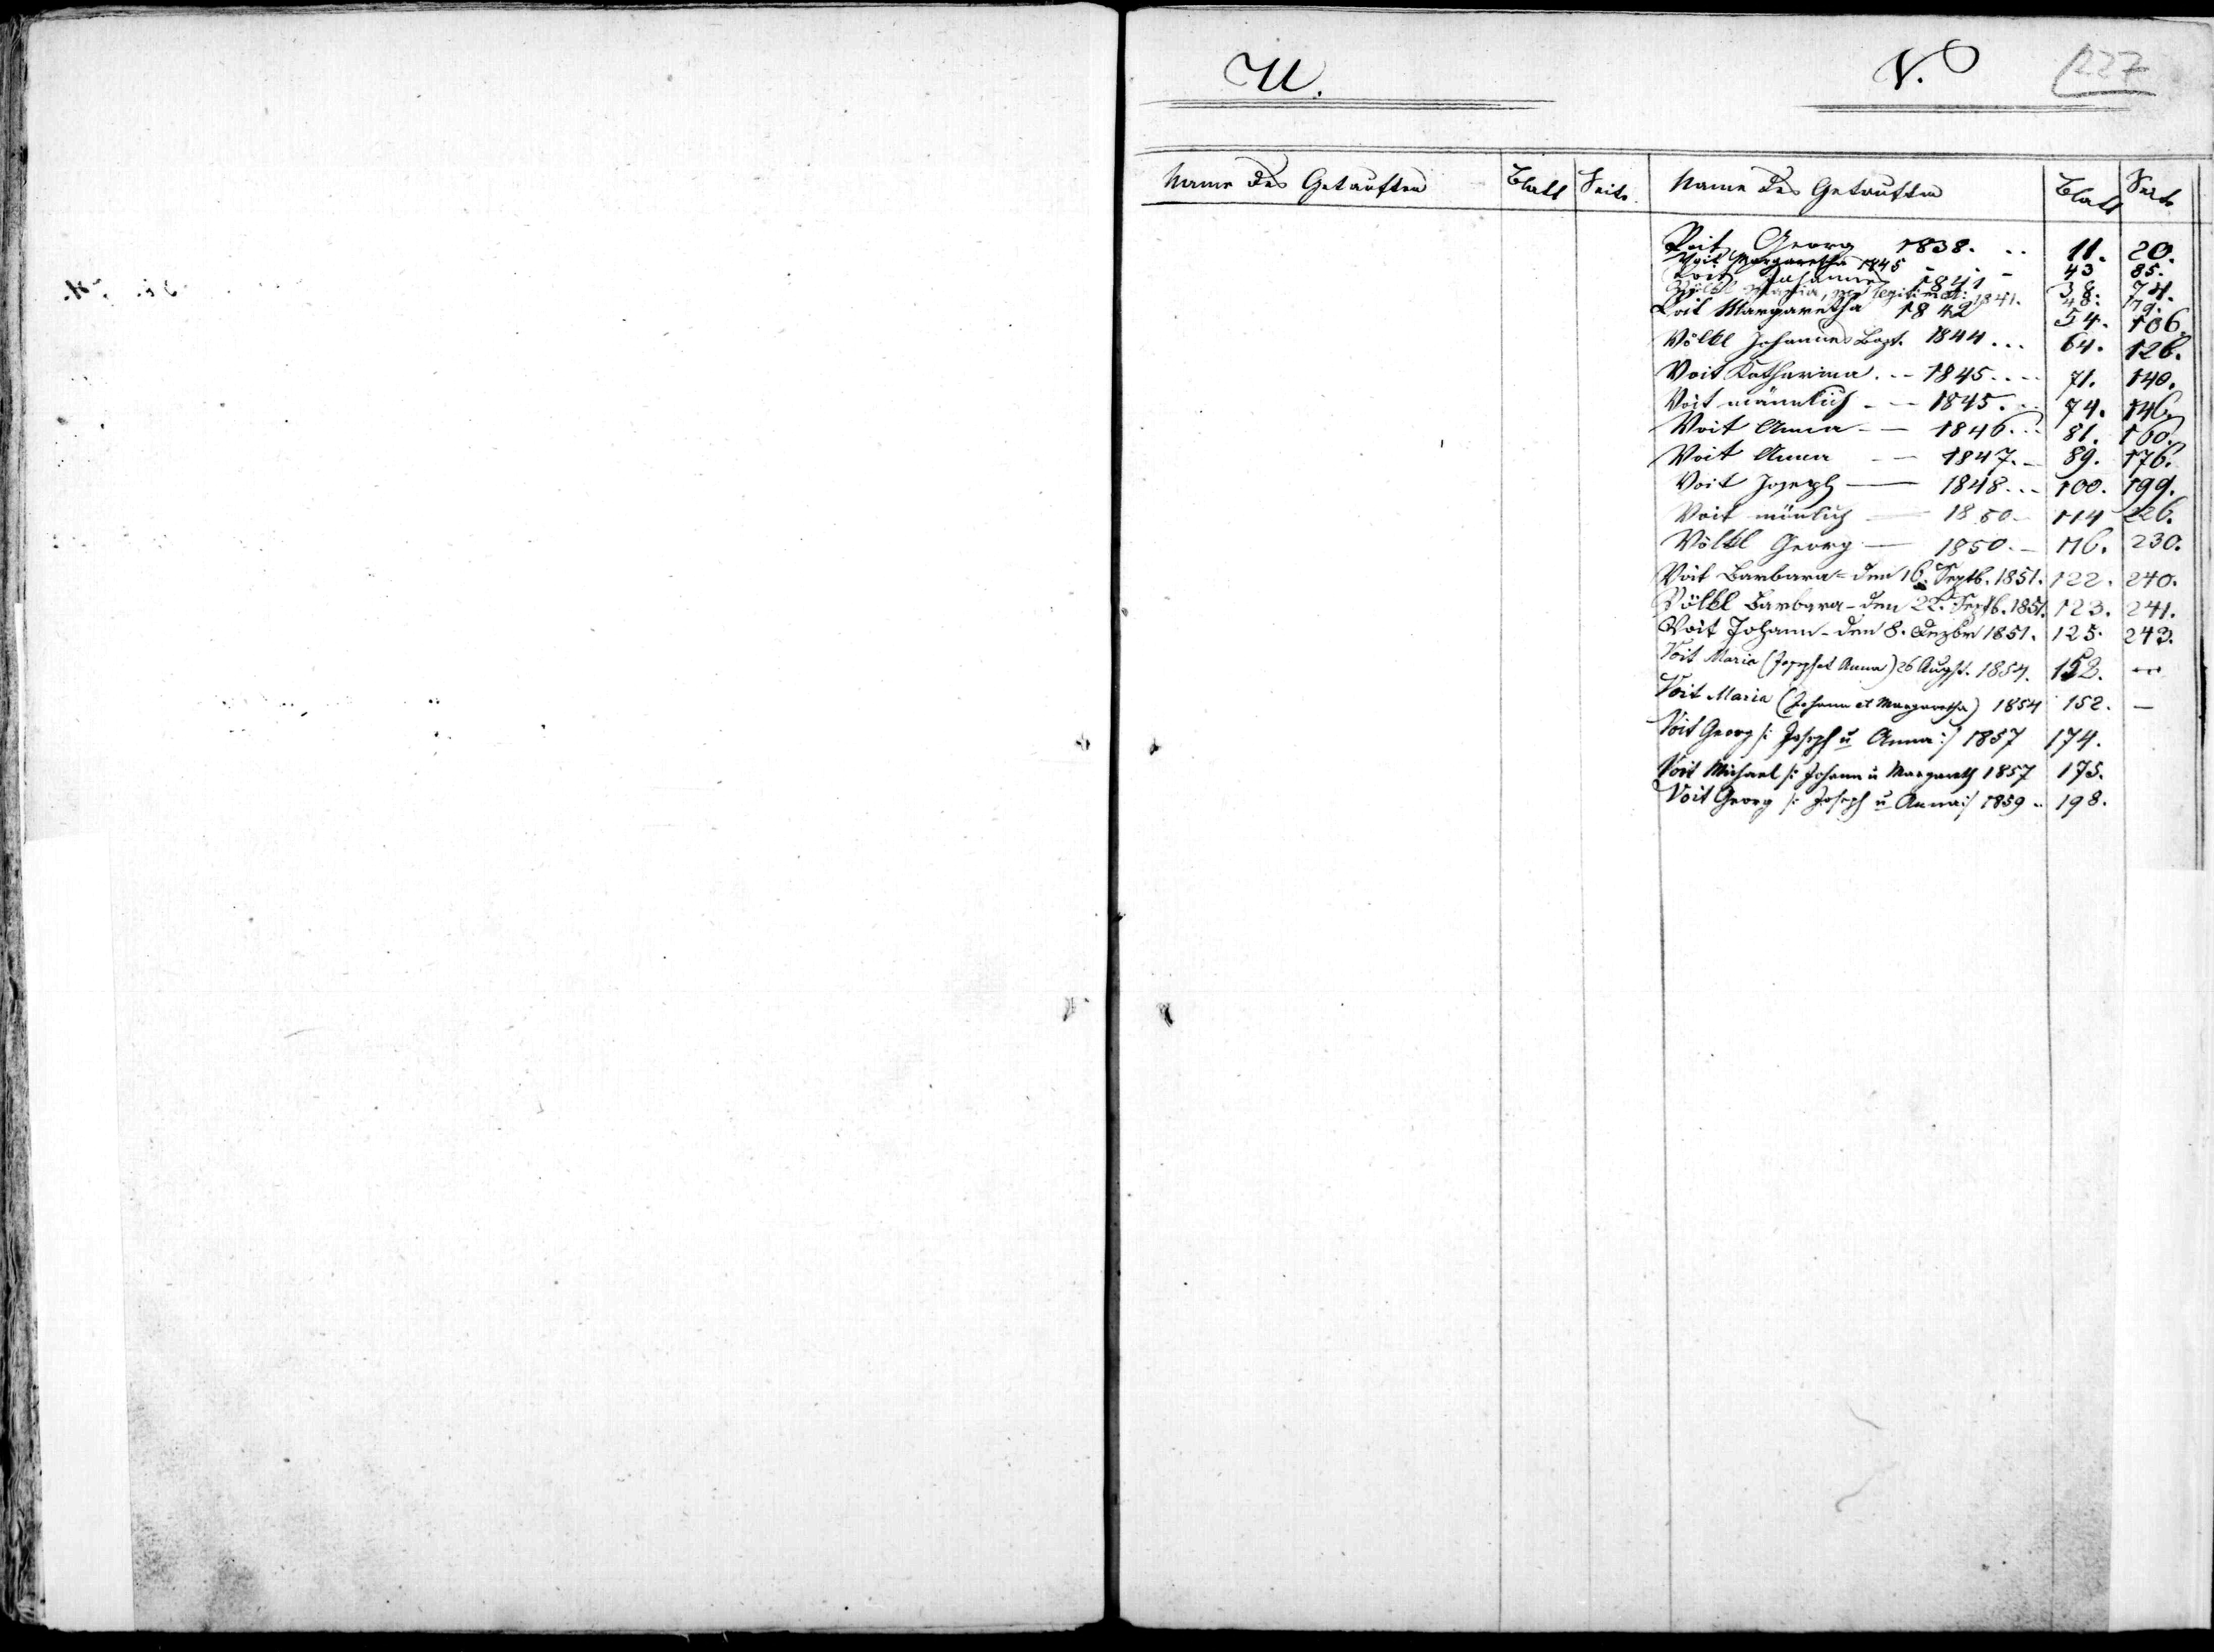 U. V. 227
Name des Getauften Blatt Seite Name des Getauften Blatt Seite
Voit Georg 1838. . . 11. 20.
Voit Margaretha 1845 - 43 85.
Voit Johannes 1841 38. 74.
Völkl Maria, legitimat: 1841. 48. 79.
Voit Margaretha 1842 54. 106.
Völkl Johannes Bapt. 1844 . . . 64. 126.
Voit Katharina . - - 1845 . . - - 71. 140.
Voit männlich - - 1845. . . 74. 146.
Voit Anna - - 1846. . . 81. 160.
Voit Anna - - 1847. - 89. 176.
Voit Joseph — 1848. . . 100. 199.
Voit mänlich — 1850 - 114 226.
Völkl Georg — 1850. - 116. 230.
Voit Barbara = den 16. Septb. 1851. 122. 240.
Völkl Barbara - den 22. Septb. 1851. 123. 241.
Voit Johann - den 8. Dezbr 1851. 125. 243.
Voit Maria (Joseph et Anna) 26 Augst. 1854. 152. —
Voit Maria (Johann et Margaretha) 1854 152. —
Voit Georg /: Joseph u Anna :/ 1857 174.
Voit Michael /: Johann u Margareth 1857 175.
Voit Georg /: Joseph u Anna :/ 1859 .. 198.